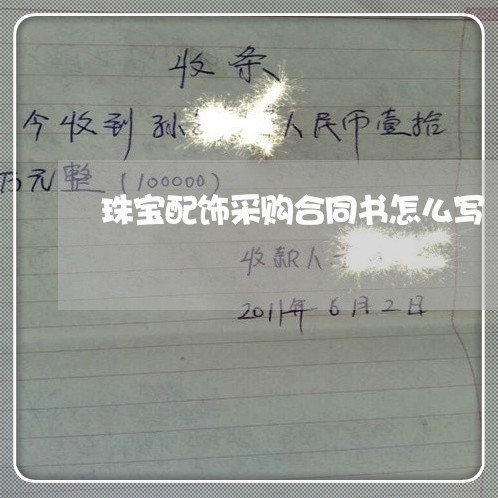 收条
今收到孙 人民币壹拾
万元整（100000）
珠宝配饰采购合同书怎么写
收款人
2011年6月2日